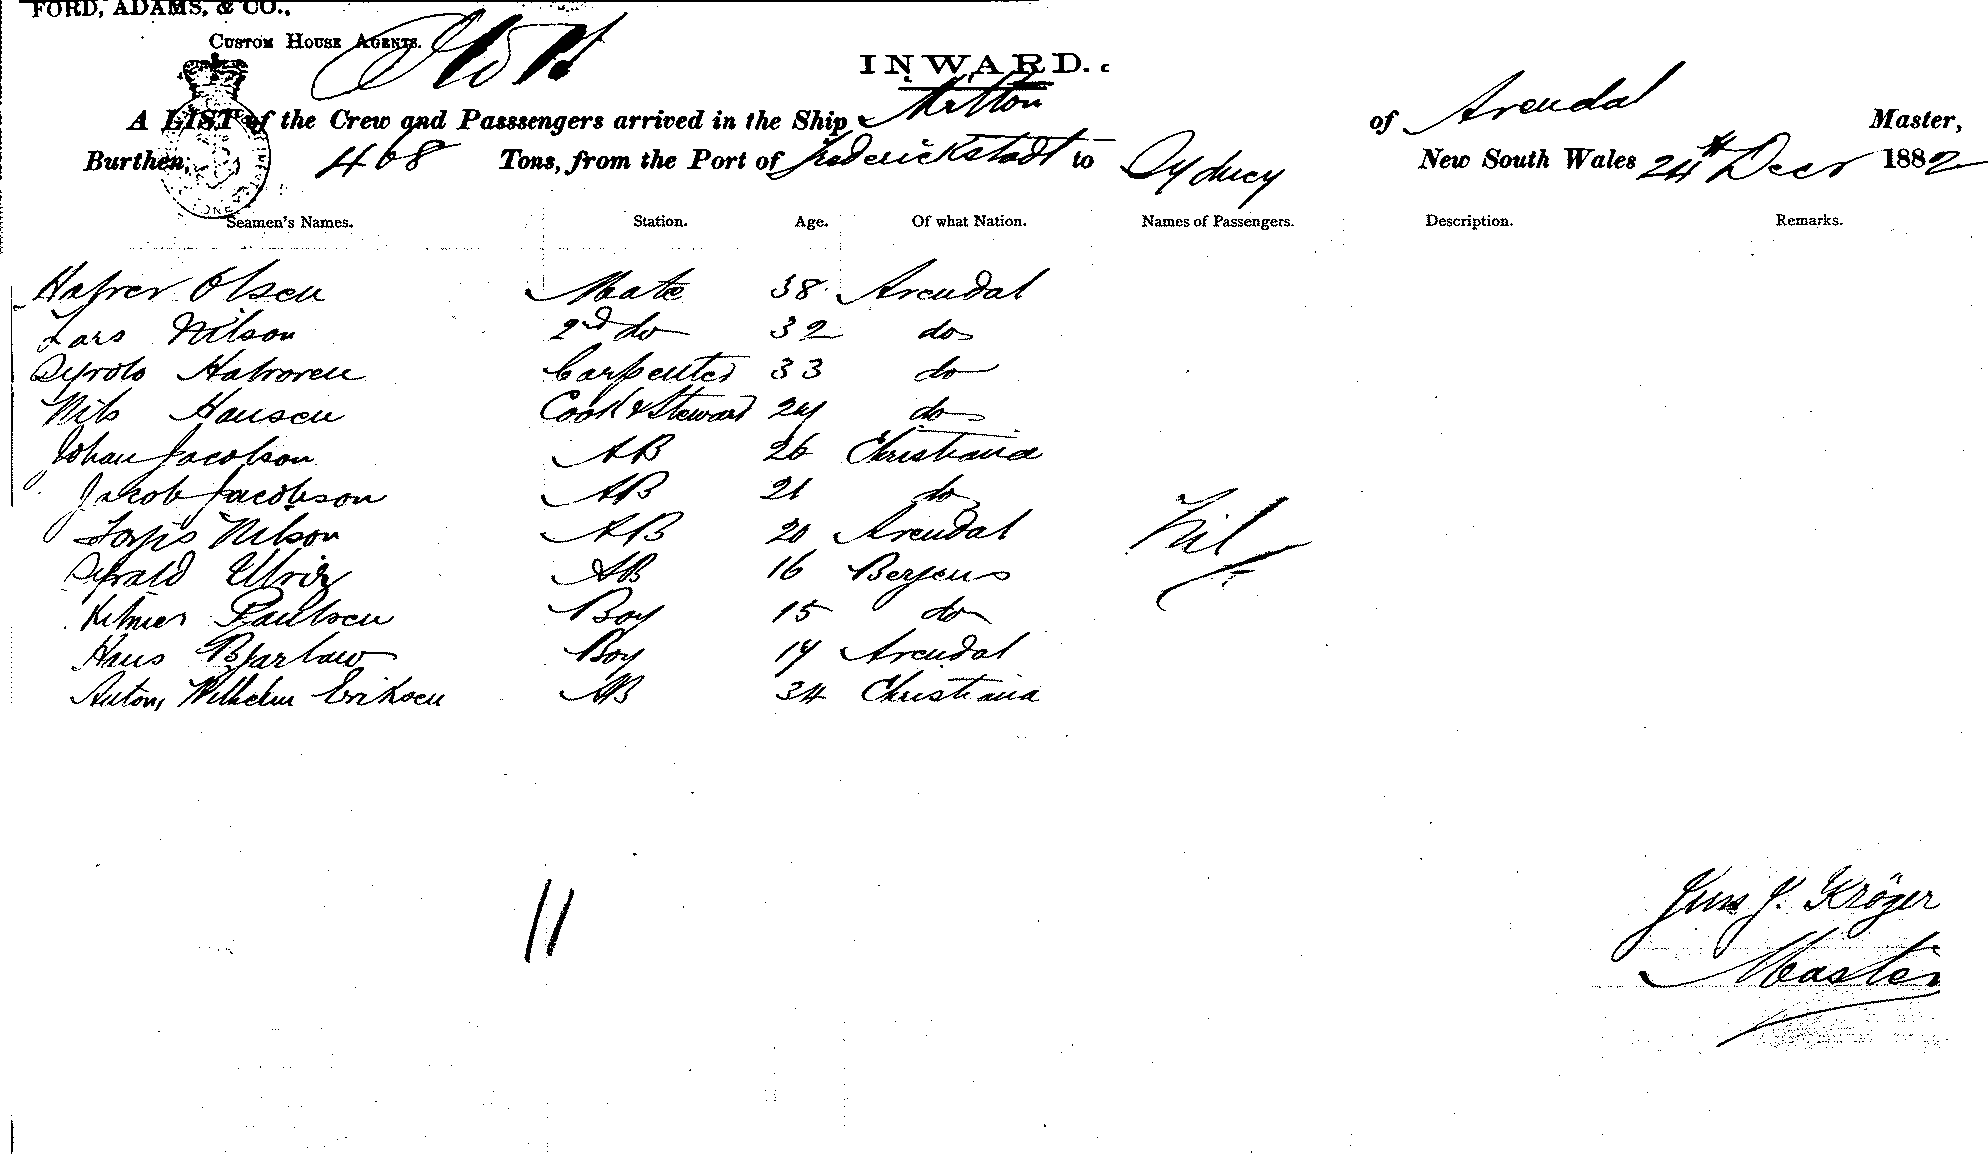 FORD, ADAMS, & CO.,
CUSTOM HOUSE AGENTS.
INWARD.
A LIST of the Crew and Passsengers arrived in the Ship Milton of Arendal Master,
Burthen, 468 Tons, from the Port of Frederickstadt to Sydney New South Wales 24th Decr 1882
Seamen's Names. Station. Age. Of what Nation. Names of Passengers. Description. Remarks.
Olsen Mate 38 Arendal
Lars Nilson 2nd do 32 do
Carpenter 33 do
Nils Hansen Cook & Steward 24 do
Johan Jacobson AB 26 Christiania
Jacob Jacobson AB 21 do
Nilson AB 20 Arendal
AB 16 Bergens
Paulsen Boy 15 do
Hans Boy 14 Arendal
Anton Wilhelm Eriksen AB 34 Christiania
Nil
11
Jens J. Kröger
Master